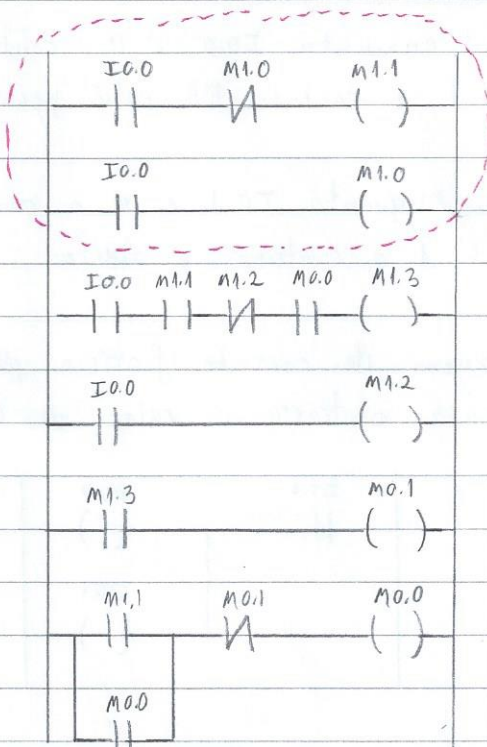 I0.0 M1.0 M1.1
I0.0 M1.0
I0.0 M1.1 M1.2 M0.0 M1.3
I0.0 M1.2
M1.3 M0.1
M1.1 M0.1 M0.0
M0.0